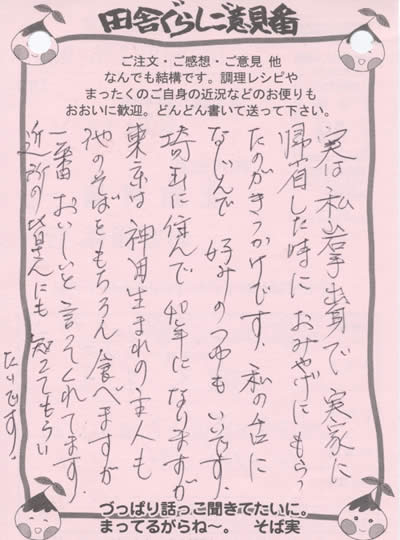 田舎ぐらしご意見番
ご注文・ご感想・ご意見 他
なんでも結構です。調理レシピや
まったくのご自身の近況などのお便りも
おおいに歓迎。どんどん書いて送って下さい。
実は私岩手出身で 実家に
帰省した時に おみやげにもらっ
たのがきっかけです。私の舌に
なじんで 好みのつゆもいいです。
埼玉に住んで 40年になりますが
東京は神田生まれの主人も
他のそばももちろん食べますが
一番おいしいと言ってくれてます。
近所の皆さんにも 知ってもらい
たいです。
づっぱり話っこ聞きてたいに。
まってるがらね〜。 そば実